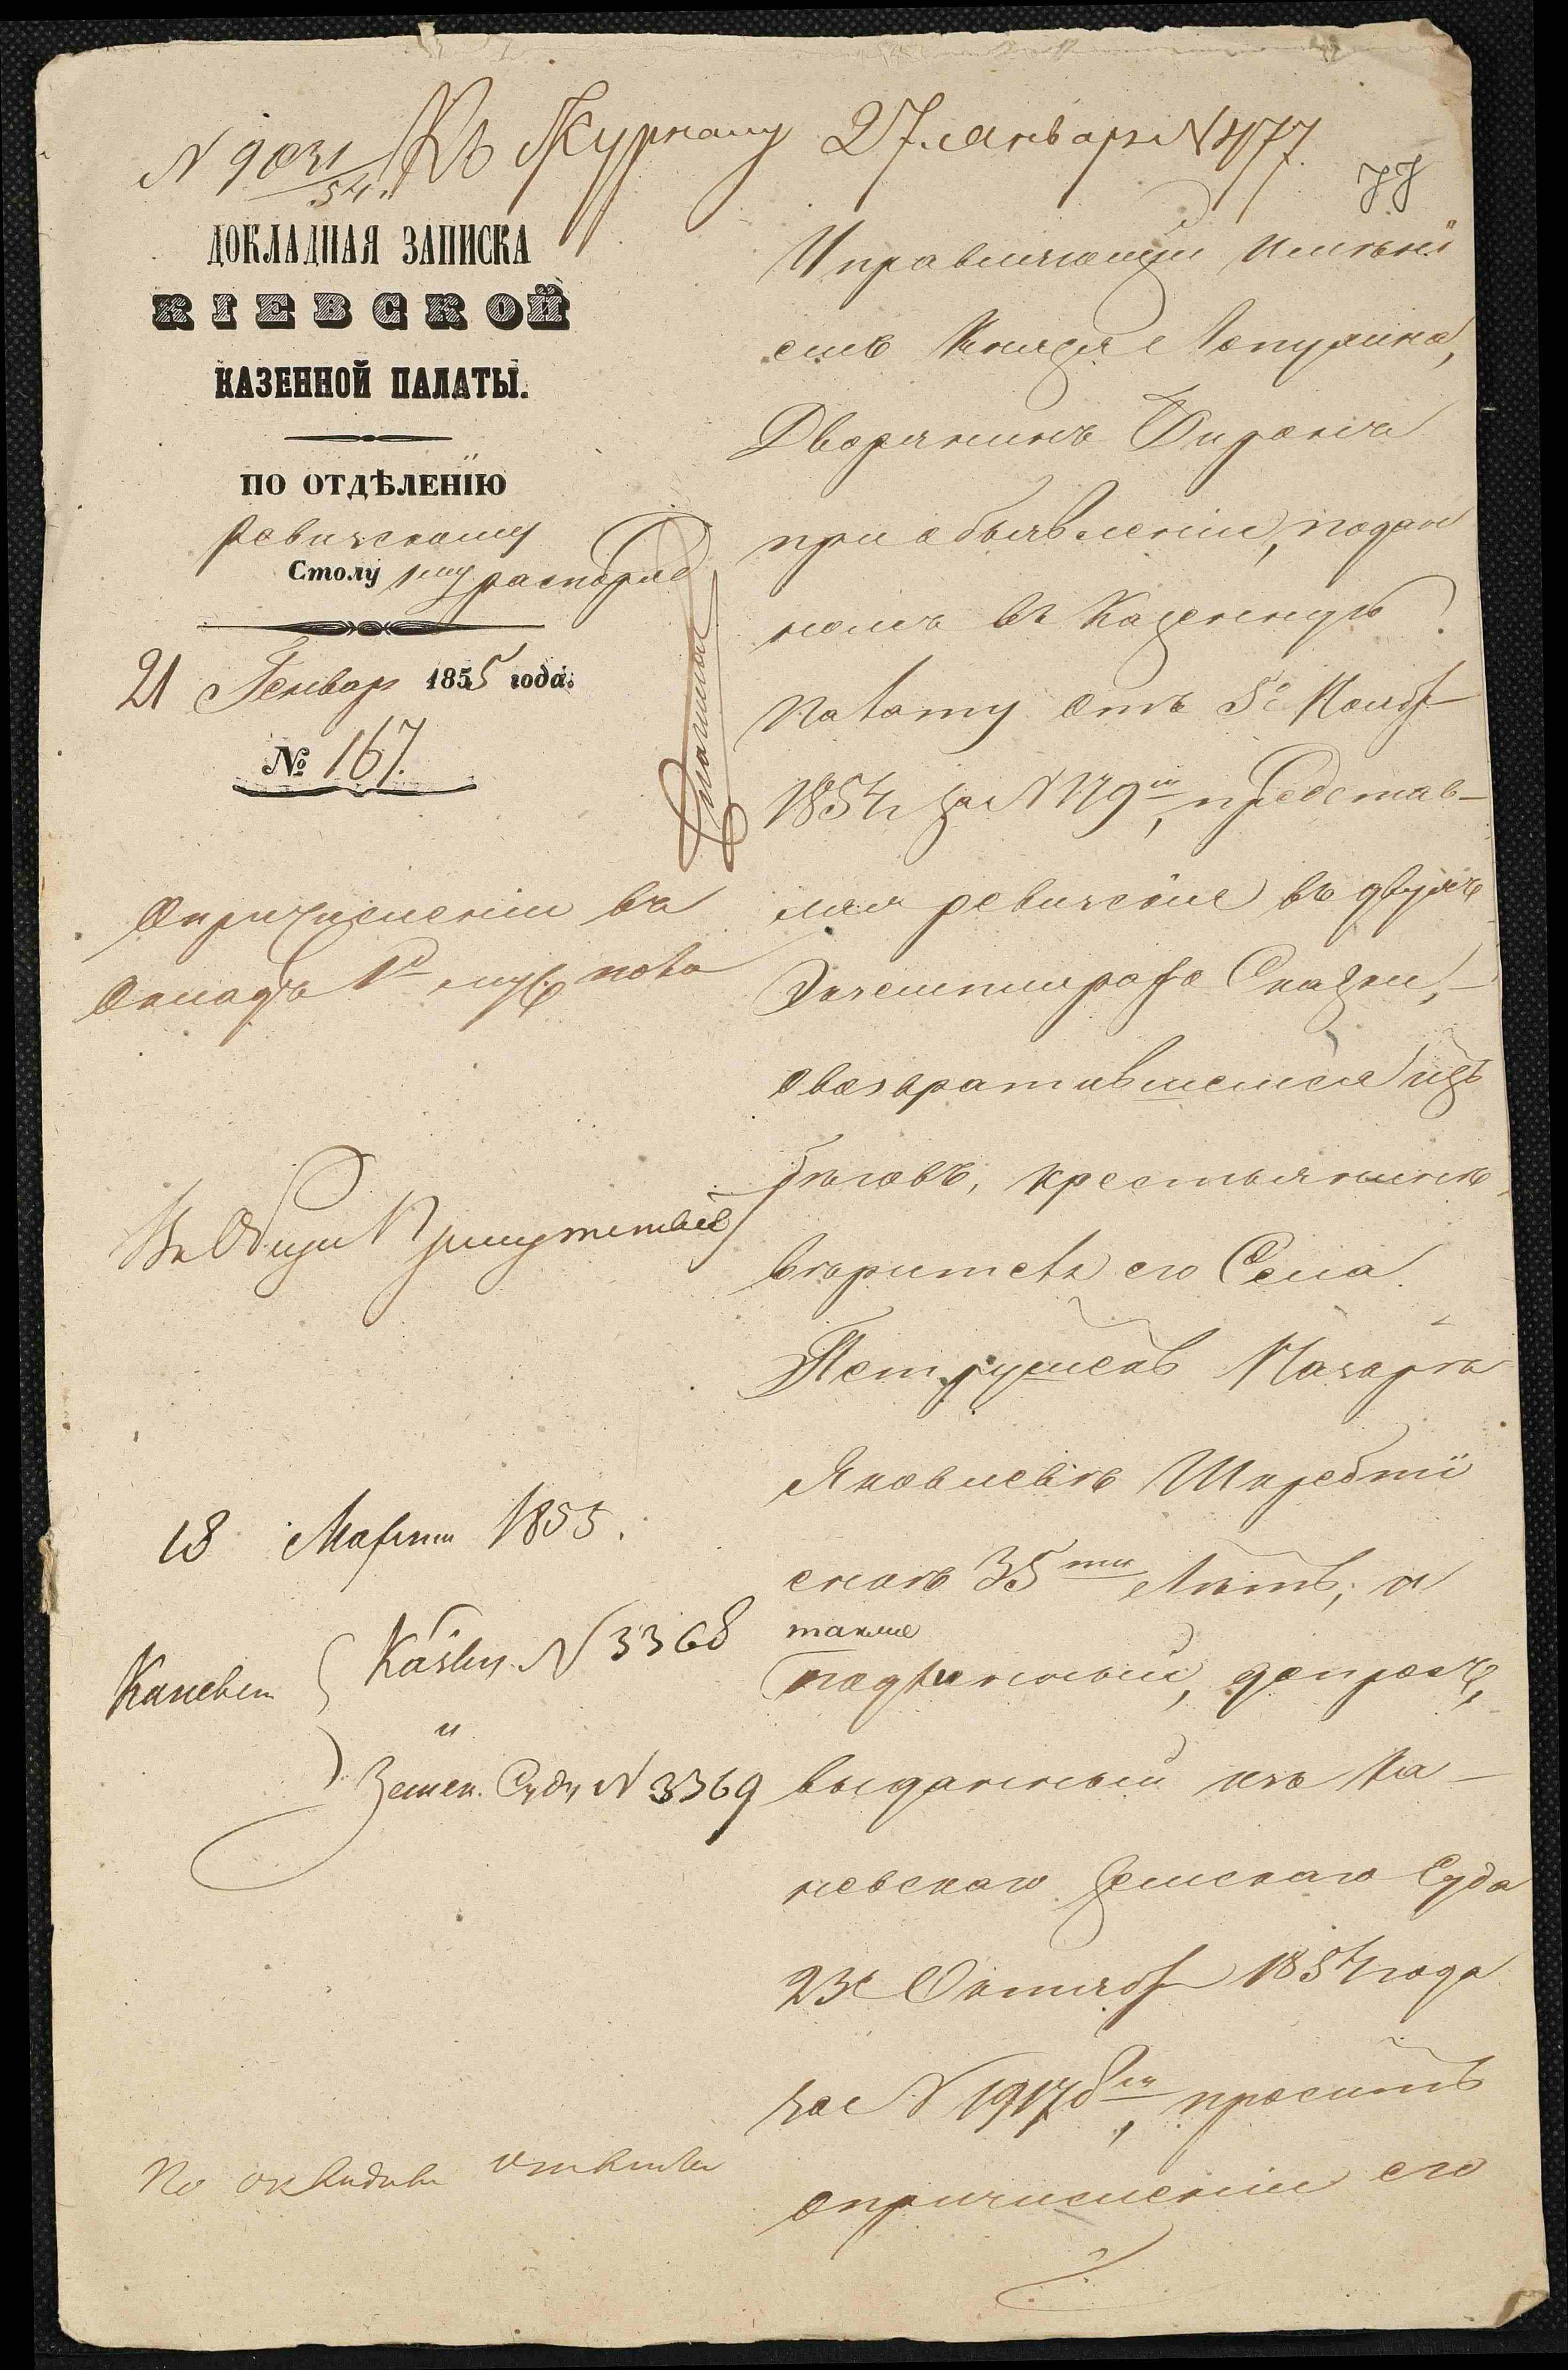 N 9031/54. Къ Журналу 27. Января N 477.
77
ДОКЛАДНАЯ ЗАПИСКА
КІЕВСКОЙ
КАЗЕННОЙ ПАЛАТЫ.
ПО ОТДѢЛЕНІЮ
Ревизскому
Столу 1му распоряд
21 Генвар 1855 года.
№ 167.
О причисленіи въ
окладъ 1й муж. пола
Въ Общи Присутствіе
18 Марта 1855.
Каневск
Казнч. N 3368
и
Земск. Суду N 3369
По
Управляющій имѣні
емъ Князя Лопухина,
Дворянинъ
при объявленіи, подан
номъ въ Казенную
Палату отъ 5го Нояб
1854 за N 179м, представ-
ляя ревизскіе въ двухъ
Экземплярахъ Сказки,
о возвратившемся изъ
бѣговъ, крестьянинѣ
вѣрителя его Села
Петрушекъ Назарѣ
Яковлевѣ
35ти Лѣтъ, и
также
подлинный, допросъ,
выданный изъ Ка-
невскаго Земскаго Суда
23го Октяб 1854 года
за N 19178м, проситъ
о причисленіи его